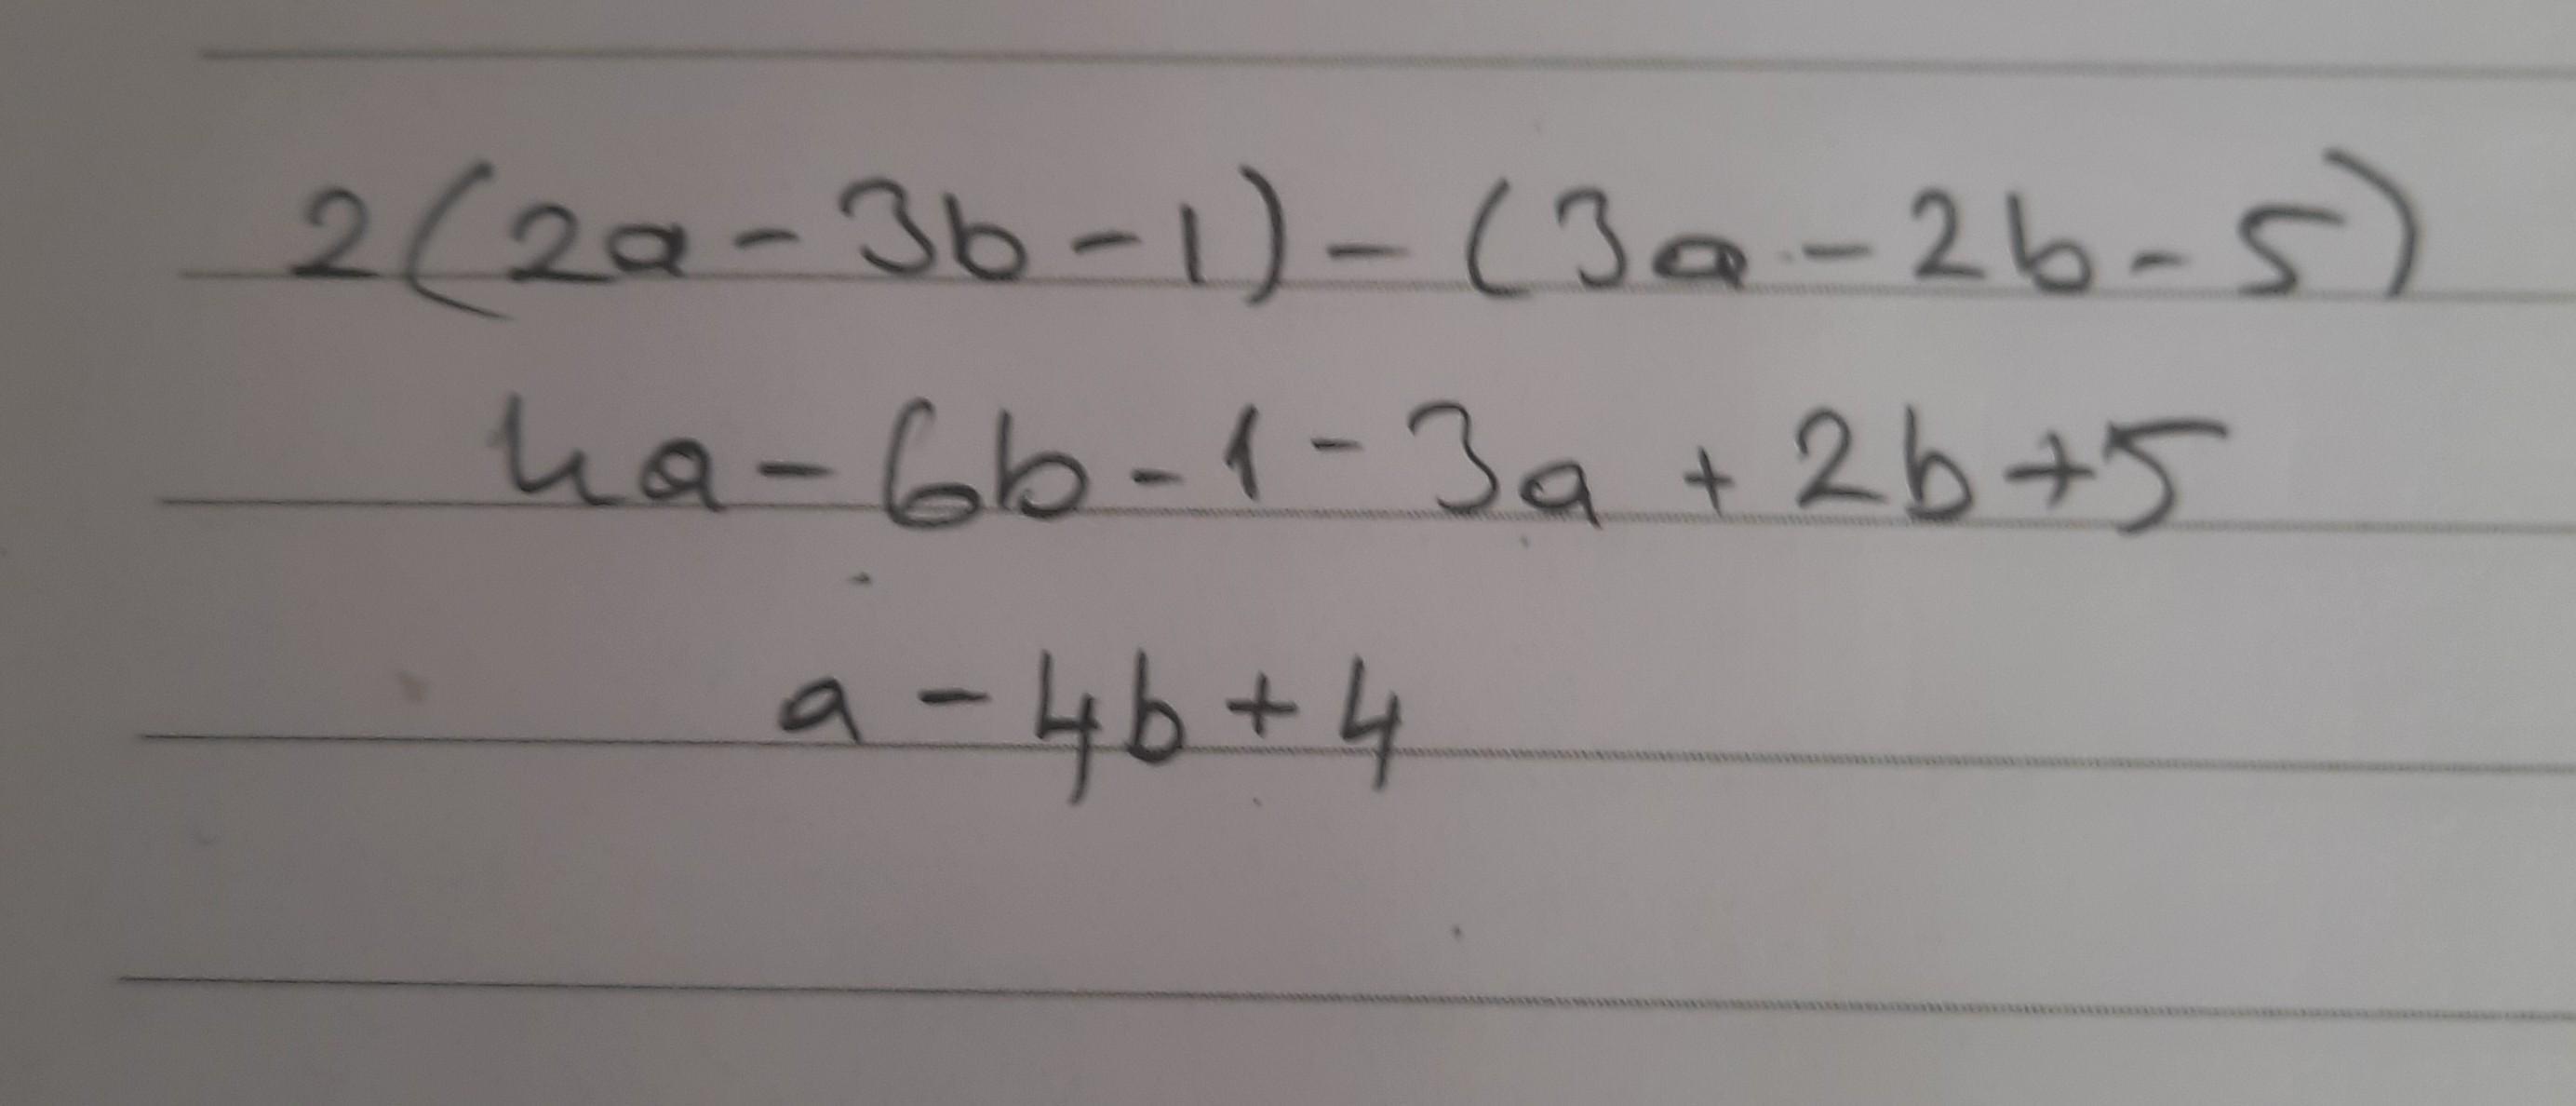 2(2a-3b-1)-(3a-2b-5)
4a-6b-1-3a+2b+5
a-4b+4